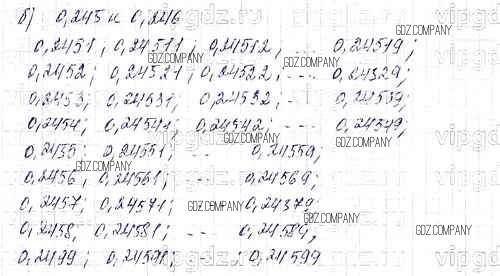 б) 0,245 и 0,246
0,2451; 0,24511; 0,24512, ... 0,24519;
0,2452; 0,24521; 0,24522, ... 0,24529;
0,2453; 0,24531; 0,24532, ... 0,24539;
0,2454; 0,24541; 0,24542; ... 0,24549;
0,2455; 0,24551; ... 0,24559;
0,2456, 0,24561; ... 0,24569;
0,2457; 0,24571; ... 0,24579;
0,2458, 0,24581; ... 0,24589,
0,2499; 0,24591; ... 0,24599
GDZ.COMPANY
GDZ.COMPANY
GDZ.COMPANY
GDZ.COMPANY
GDZ.COMPANY
GDZ.COMPANY
GDZ.COMPANY
GDZ.COMPANY
GDZ.COMPANY